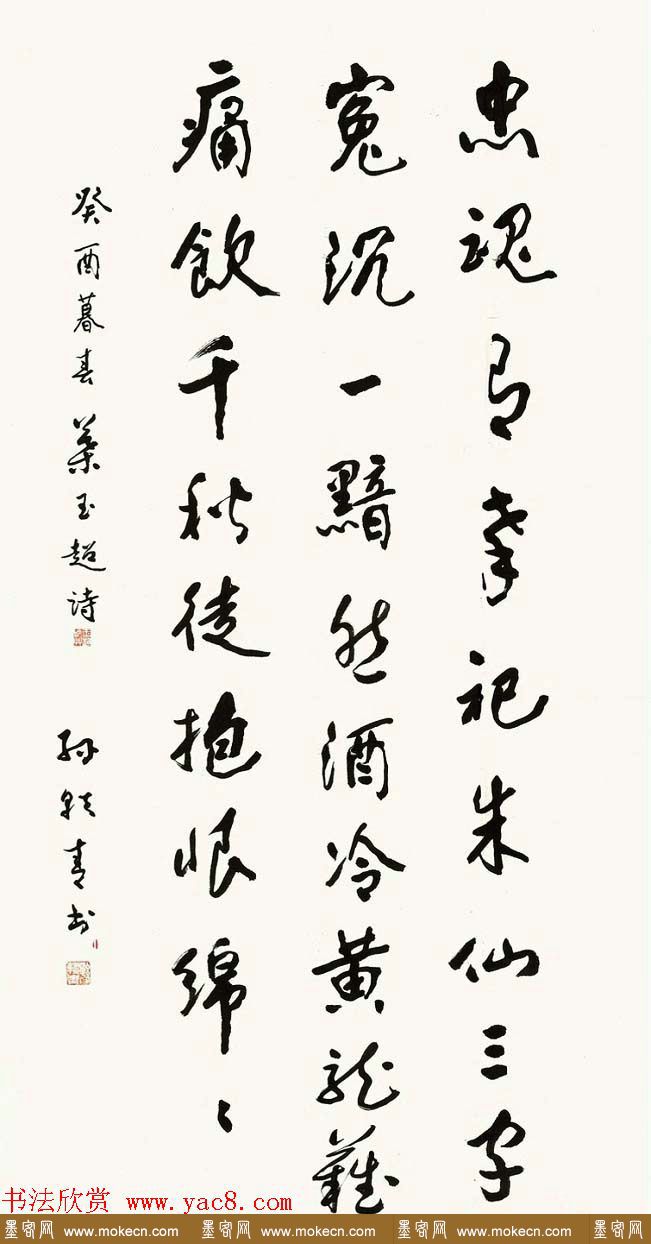 忠魂有幸祀朱仙三字
寃沉一黯然酒冷黄龍難
痛飲千秋徒抱恨綿〻
癸酉暮春 葉玉超詩
孫軼青書
书法欣赏 www.yac8.com
墨客网 www.mokecn.com 墨客网 www.mokecn.com 墨客网 www.mokecn.com 墨客网